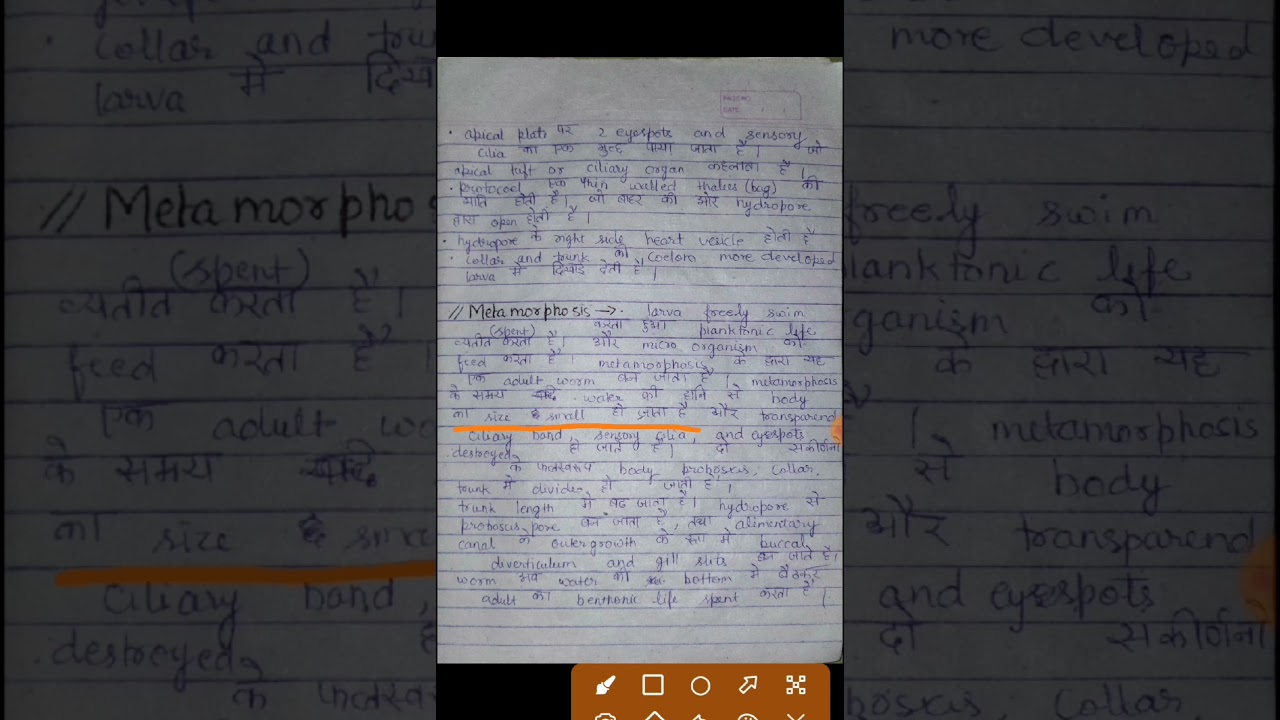 PAGE NO.
DATE
• apical plate पर 2 eyespots and sensory
cilia का एक गुच्छ पाया जाता है। जो
apical tuft or ciliary organ कहलाता है।
• protocoel एक thin walled (bag) की
भाति होती है। जो बाहर की ओर hydropore
द्वारा open होती है।
• hydropore के right side heart vesicle होती है
• collar and trunk की more developed
larva में दिखाई देती है।
// Metamorphosis → • larva freely swim
करता हुआ planktonic life
(spent)
व्यतीत करता है। और micro organism को
feed करता है। metamorphosis के द्वारा यह
एक adult worm बन जाता है। metamorphosis
के समय water की हानि से body
का size small हो जाता है और transparend
ciliary band, sensory cilia, and eyespots
destroyed हो जाते है। दो सकीर्णनो
के फलस्वरूप body proboscis, collar,
trunk में divide हो जाती है।
trunk length में बढ जाता है। hydropore से
probosus pore बन जाता है, तथा alimentary
canal के outergrowth के रूप में buccal
diverticulum and gill slits बन जाते है।
worm अब water की bottom में बैठकर
adult का benthonic life spent करता है।